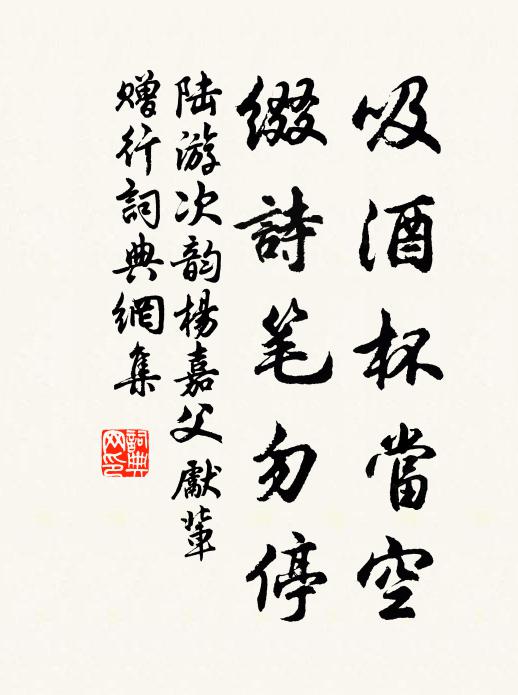 吸酒杯當空
綴詩笔勿停
陆游次韵楊嘉父獻輩
贈行詞典網集
詞典网印